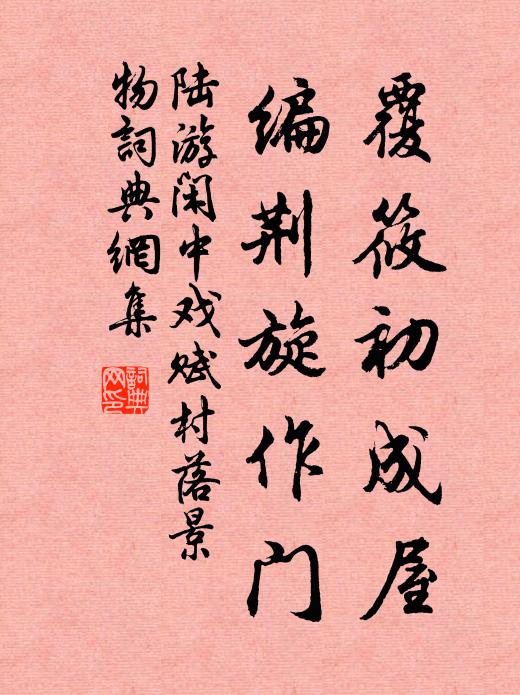 覆筱初成屋
编荆旋作门
陆游闲中戏赋村落景
物词典網集
詞典网印